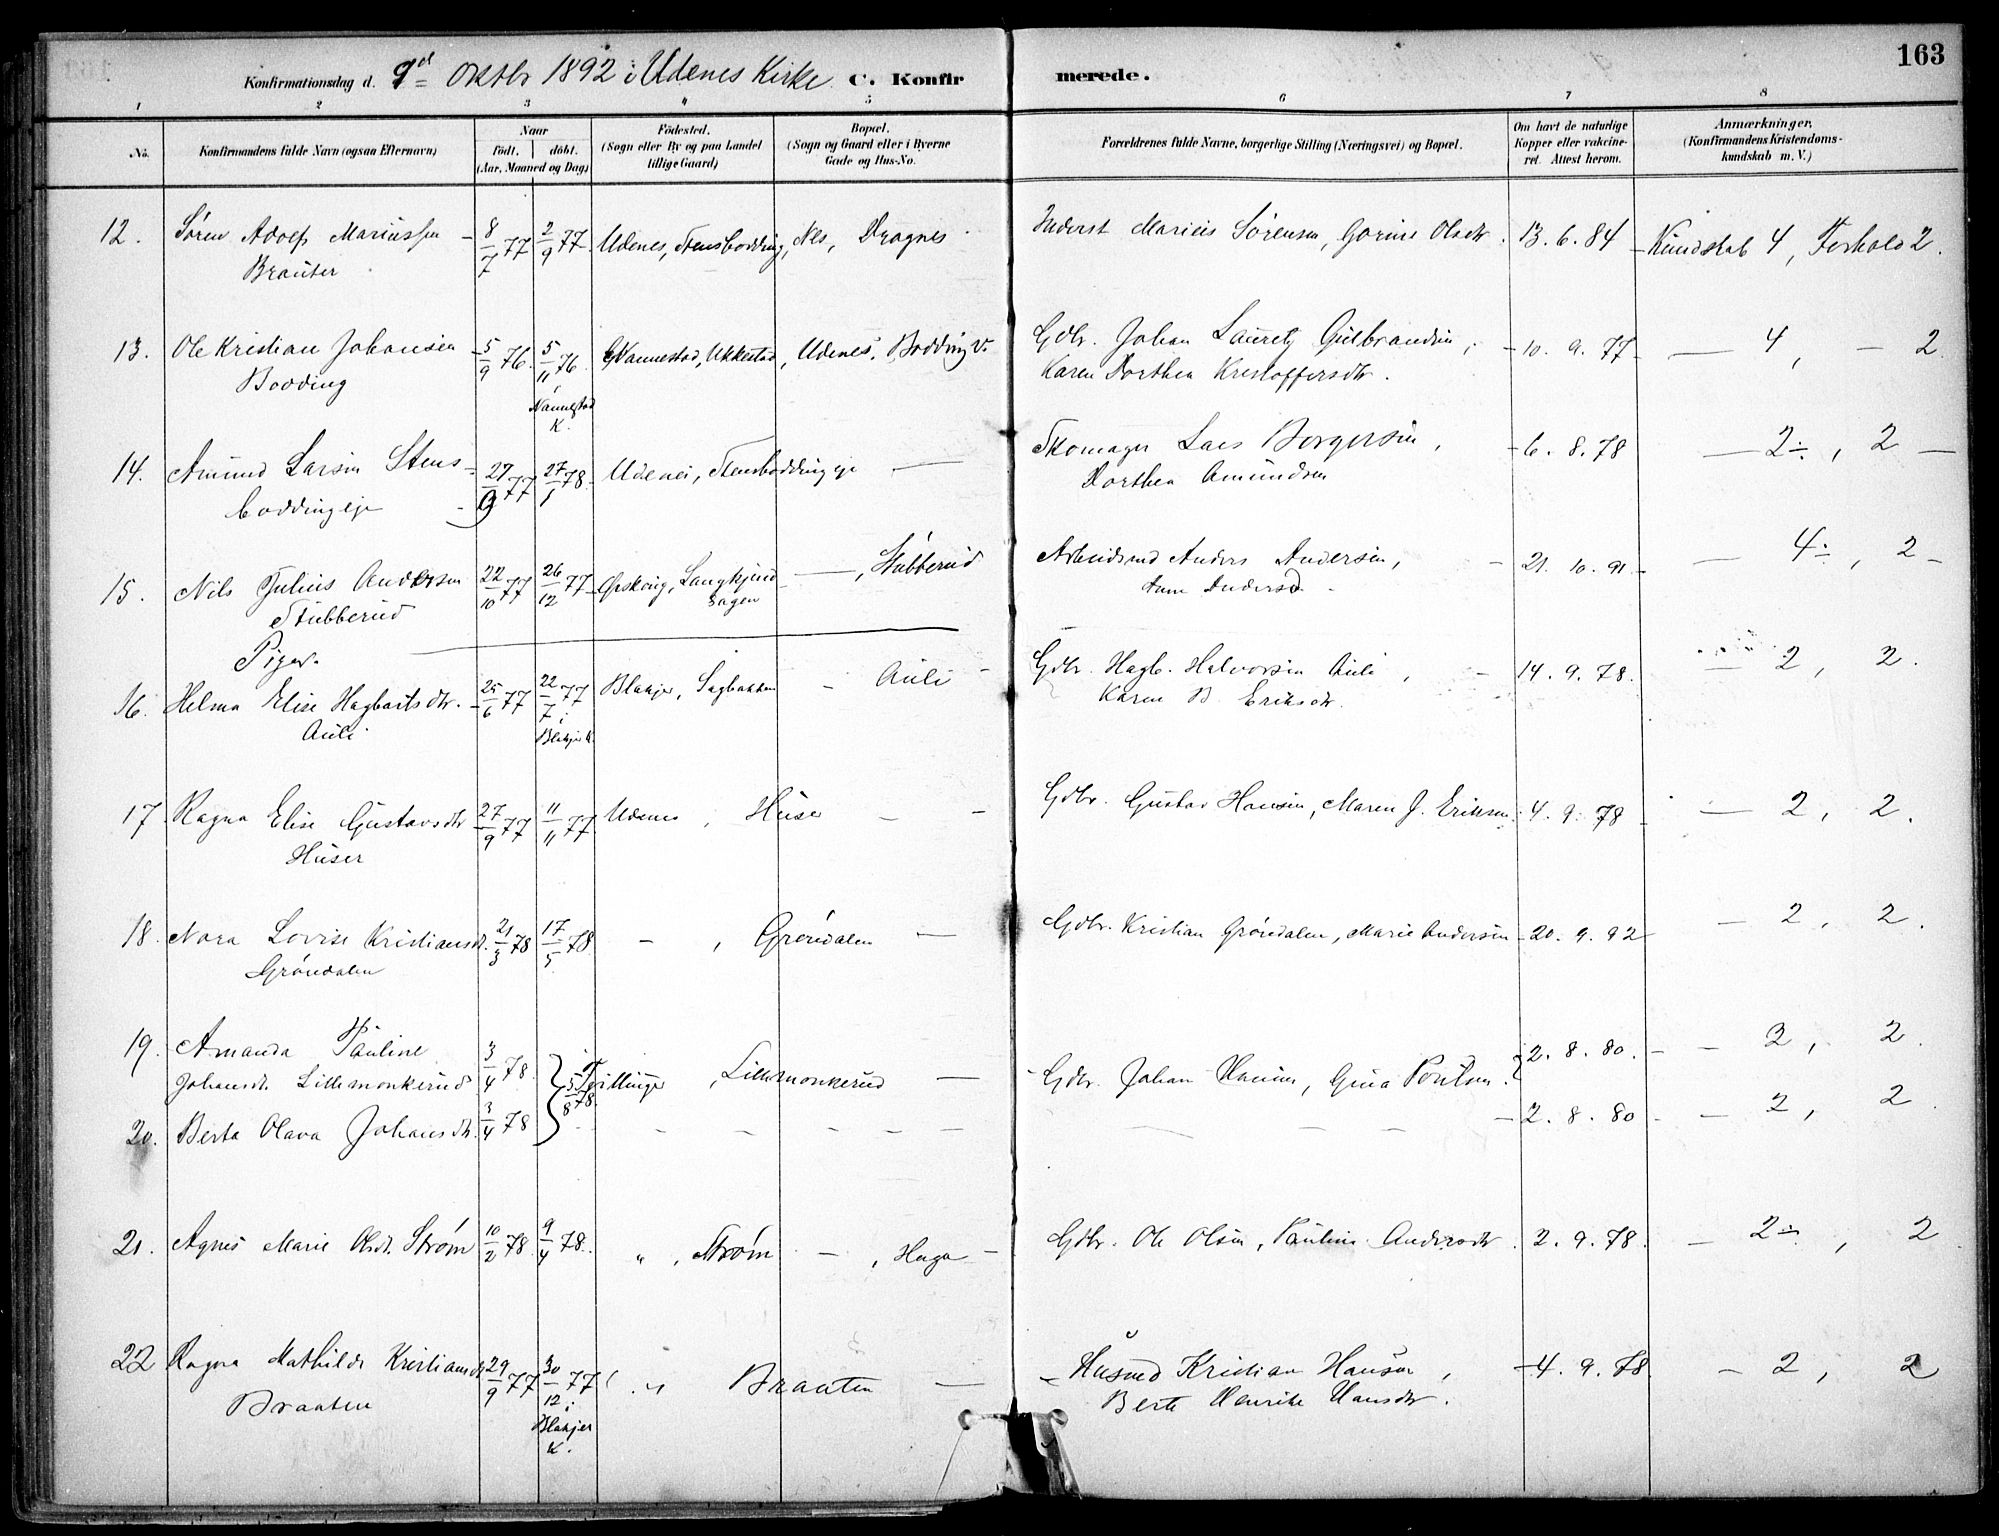 163
Konfirmationsdag d. 9d Oktbr 1892 i Udenes Kirke. C. Konfirmerede.
1 2 3 4 5 6 7 8
No. Konfirmandens fulde Navn (ogsaa Efternavn) Naar født. døbt. (Aar, Maaned og Dag) Fødested. (Sogn eller By og paa Landet tillige Gaard) Bopæl. (Sogn og Gaard eller i Byerne Gade og Hus-No.) Forældrenes fulde Navne, borgerlige Stilling (Næringsvei) og Bopæl. Om havt de naturlige Kopper eller vakcineret. Attest herom. Anmærkninger. (Konfirmandens Kristendomskundskab m. V.)
12. Søren Adolf Mariussen 8/7 77 2/9 77 Udenes, Stensbodding, Nes, Dragnes Inderst Marius Sørensen, Gorine Olsdtr. 13.6.84 Kundskab 4, Forhold 2.
Brauter
13. Ole Kristian Johansen 5/9 76. 5/11 76 Nannestad, Ukkestad, Udenes, Bodding v. Gdbr. Johan Lauretz Gulbrandsen, 10.9.77 — 4, — 2.
Bodding i Nannestad K. Karen Dorthea Kristoffersdtr.
14. Amund Larsen Stens- 27/9 77 27/1 78 Udenes, Stensboddingeje — Skomager Lars Borgersen, 6.8.78 — 2÷, 2 —
boddingeje Dorthea Amundsen
15. Nils Julius Andersen 22/10 77 26/12 77 Ørskoug, — , Stubberud Arbeidsmd Anders Andersen, 21.10.91 — 4÷, 2 —
Stubberud
Piger.
16. Helma Elise Hagbartsdtr. 25/6 77 22/7 77 Blakjer, Sagbakken — Auli Gdbr. Hagb. Halvorsen Auli, 14.9.78. — 2, 2.
Auli i Blakjer K. Karen B. Eriksdtr.
17. Ragna Elise Gustavsdtr 27/9 77 11/11 77 Udenes, Huser — Gdbr. Gustav Hansen, Maren J. Eriksen. 4.9.78 — 2, 2.
Huser
18. Nora Lovise Kristiansdt. 21/3 78 17/5 78 — , Grøndalen — Gdbr. Kristian Grøndalen, Marie Andersen 20.9.92 — 2, 2.
Grøndalen
19. Amanda Pauline 3/4 78. 5/8 78. Tvillinger, Lillemonkerud — Gdbr. Johan Hansen, Gina 2.8.80. — 2, 2.
Johansdt. Lillemonkerud
20. Berta Olava Johansdtr. 3/4 78 — — — — — — — — 2.8.80 — 2, 2
21. Agnes Marie Olsdt. Strøm 10/2 78. 9/4 78. " , Strøm — , Haga — Gdbr. Ole Olsen, Pauline Andersdtr. 2.9.78. — 2÷, 2
22 Ragna Mathilde Kristiansdt. 29/9 77 30/12 77 " Braaten — Husmd Kristian Hansen, 4.9.78 — 2, 2
Braaten i Blakjer K. Berte Henrikke Hansdtr.